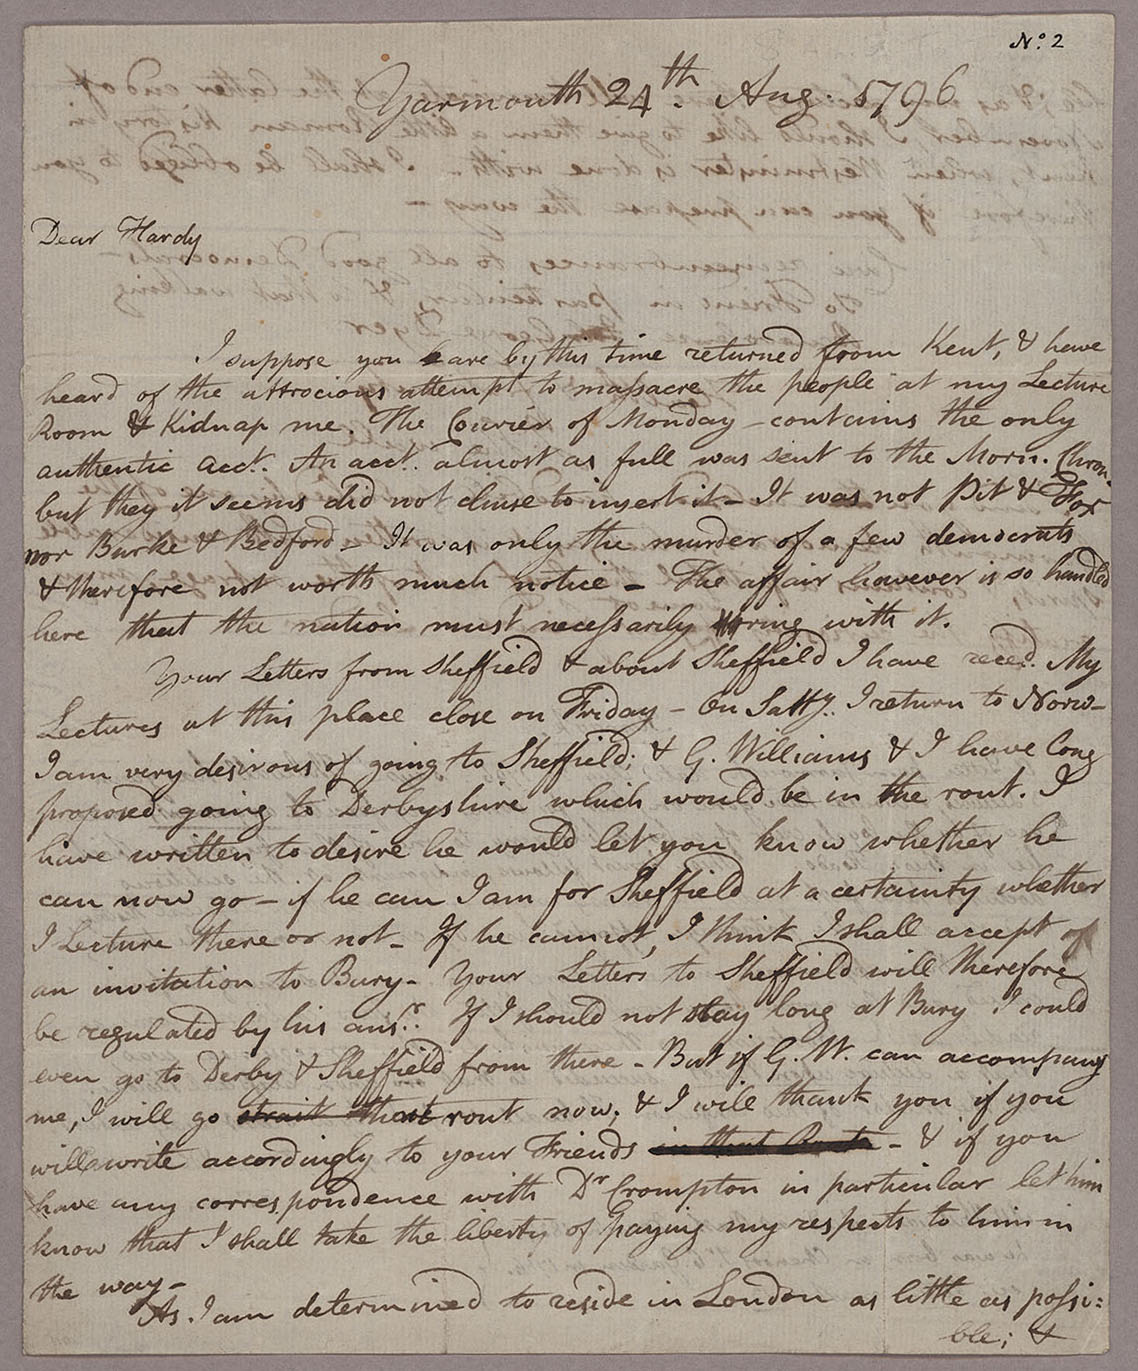 No. 2
Yarmouth 24th. Aug. 1796
Dear Hardy
I suppose you have by this time returned from Kent, & have
heard of the attrocious attempt to massacre the people at my Lecture
Room & Kidnap me. The Courier of Monday - contains the only
authentic acct. An acct. almost as full was sent to the Morn. Chron.
but they it seems did not chuse to insert it - It was not Pit & Fox
nor Burke & Bedford - It was only the murder of a few democrats
& therefore not worth much notice - The affair however is so handled
here that the nation must necessarily ring with it.
Your Letters from Sheffield & about Sheffield I have reced. My
Lectures at this place close on Friday - On Satty. I return to Norw-
I am very desirous of going to Sheffield; & G. Williams & I have long
proposed going to Derbyshire which would be in the rout. I
have written to desire he would let you know whether he
can now go - if he can I am for Sheffield at a certainty whether
I Lecture there or not - If he cannot, I think I shall accept of
an invitation to Bury - Your Letters to Sheffield will therefore
be regulated by his ansr. If I should not stay long at Bury I could
even go to Derby & Sheffield from there - But if G. W. can accompany
me, I will go strait that rout now; & I will thank you if you
will write accordingly to your Friends in that Route - & if you
have any correspondence with Dr Crompton in particular let him
know that I shall take the liberty of paying my respects to him in
the way -
As I am determined to reside in London as little as possi=
ble; &